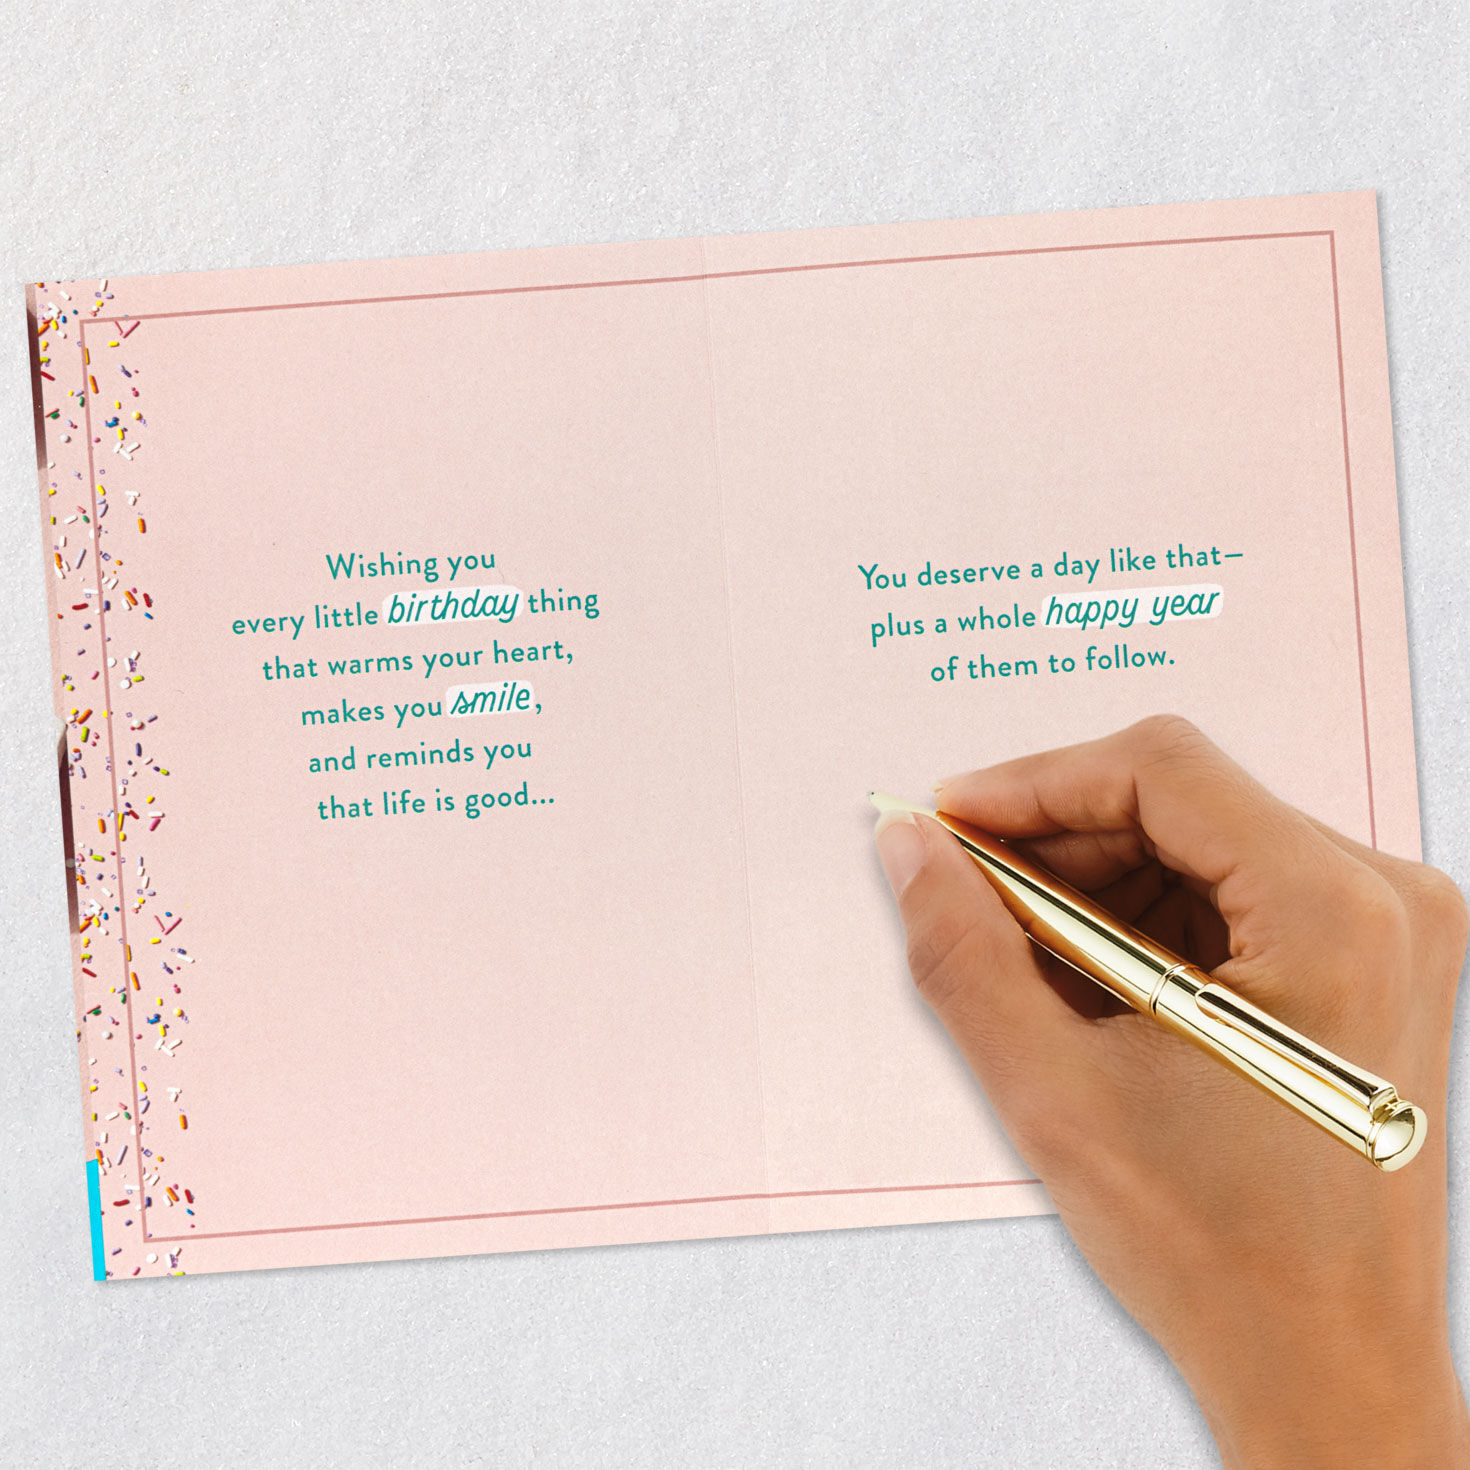 Wishing you
every little birthday thing
that warms your heart,
makes you smile,
and reminds you
that life is good...
You deserve a day like that—
plus a whole happy year
of them to follow.